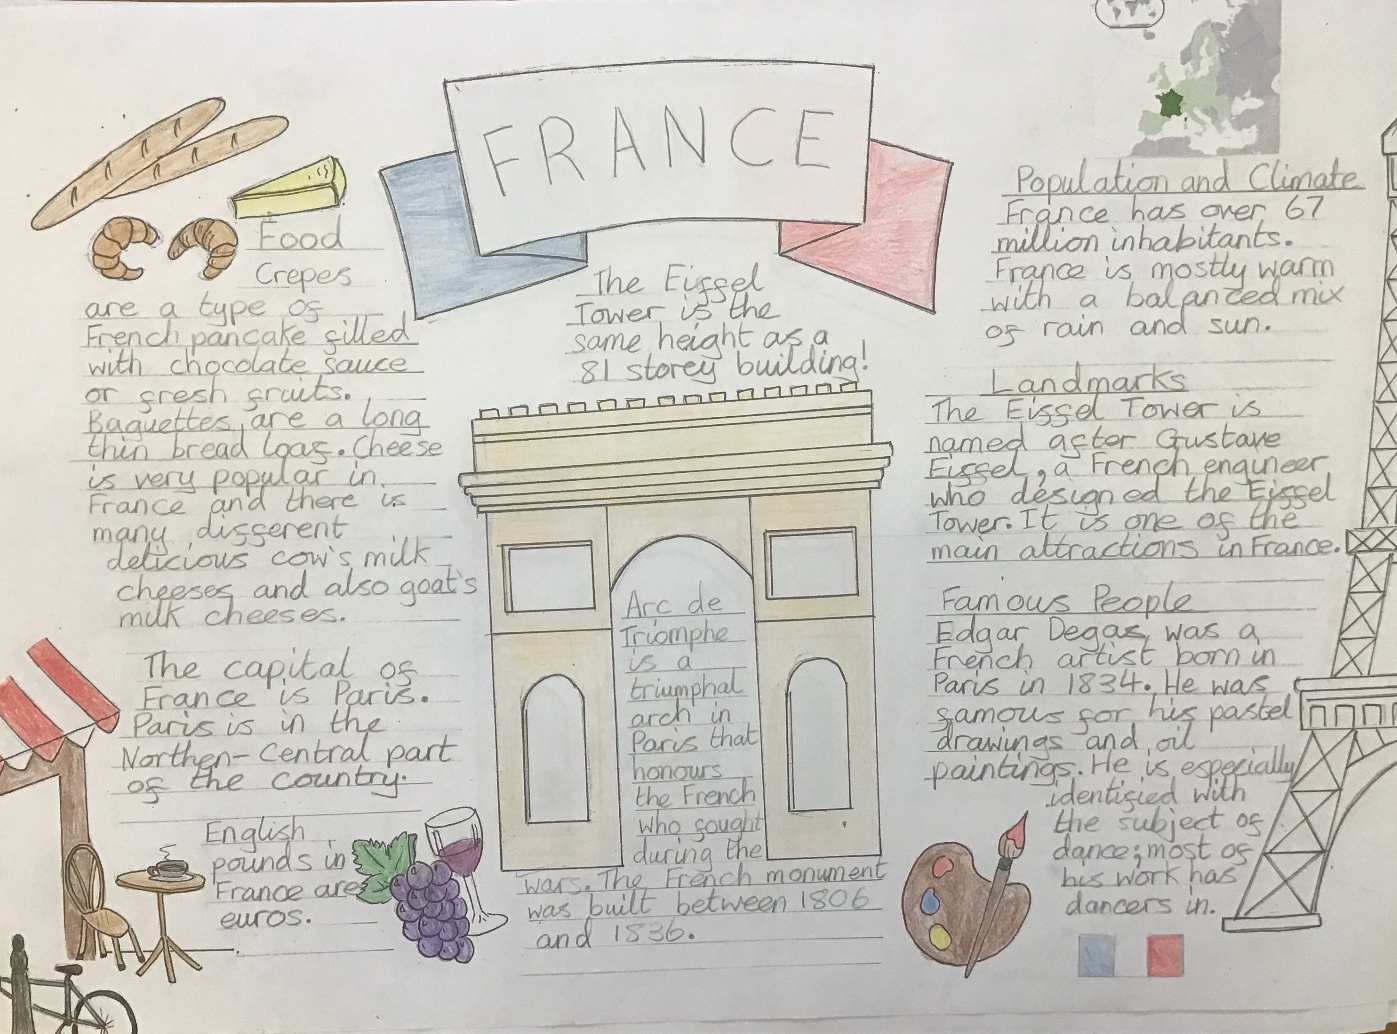 FRANCE
Food
Crepes
are a type of
French pancake filled
with chocolate sauce
or fresh fruits.
Baguettes are a long
thin bread loaf. Cheese
is very popular in
France and there is
many different
delicious cow's milk
cheeses and also goat's
milk cheeses.
The capital of
France is Paris.
Paris is in the
Northen-Central part
of the country.
English
pounds in
France are
euros.
The Eiffel
Tower is the
same height as a
81 storey building!
Arc de
Triomphe
is a
triumphal
arch in
Paris that
honours
the French
who fought
during the
wars. The French monument
was built between 1806
and 1836.
Population and Climate
France has over 67
million inhabitants.
France is mostly warm
with a balanced mix
of rain and sun.
Landmarks
The Eiffel Tower is
named after Gustave
Eiffel, a French engineer,
who designed the Eiffel
Tower. It is one of the
main attractions in France.
Famous People
Edgar Degas, was a
French artist born in
Paris in 1834. He was
famous for his pastel
drawings and oil
paintings. He is especially
identified with
the subject of
dance; most of
his work has
dancers in.